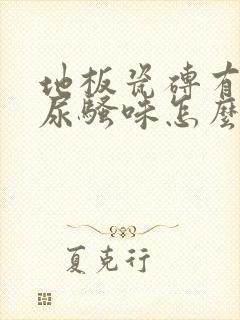 地板瓷磚有
尿騷味怎麼
夏克行